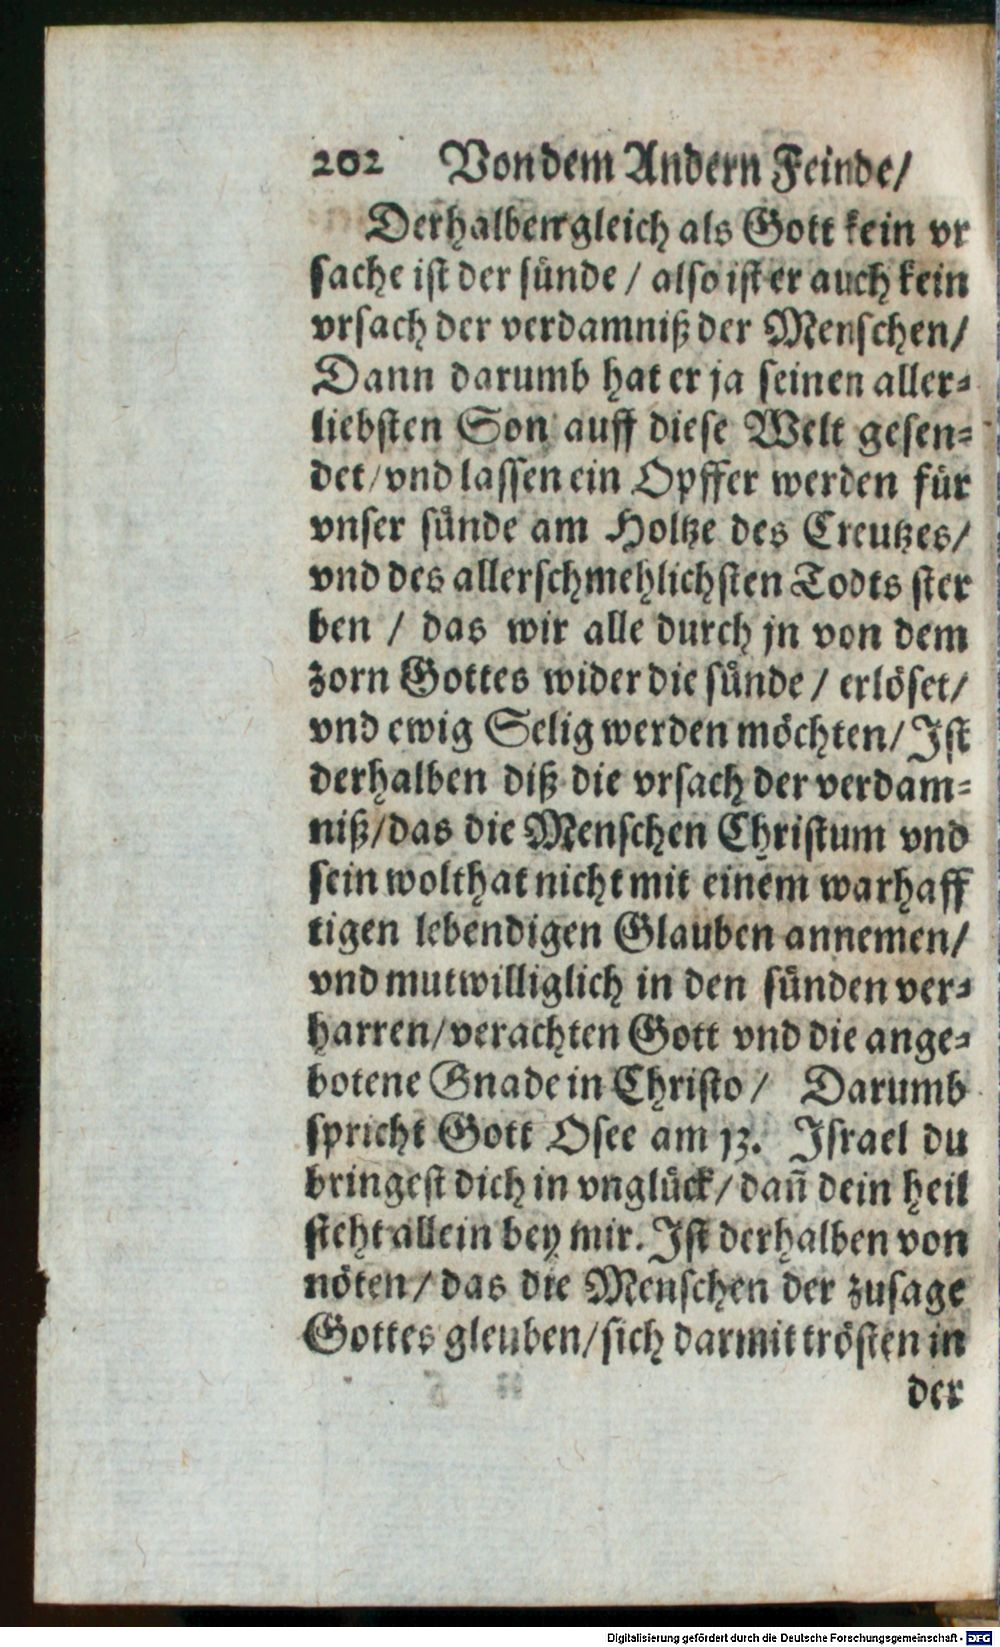 202 Von dem Andern Feinde/
Derhalben gleich als Gott kein vr
sache ist der sünde / also ist er auch kein
vrsach der verdamniß der Menschen/
Dann darumb hat er ja seinen aller-
liebsten Son auff diese Welt gesen-
det/vnd lassen ein Opffer werden für
vnser sünde am Holtze des Creutzes/
vnd des allerschmehlichsten Todts ster
ben / das wir alle durch jn von dem
zorn Gottes wider die sünde / erlöset/
vnd ewig Selig werden möchten/ Ist
derhalben diß die vrsach der verdam-
niß/das die Menschen Christum vnd
sein wolthat nicht mit einem warhaff
tigen lebendigen Glauben annemen/
vnd mutwilliglich in den sünden ver-
harren/verachten Gott vnd die ange-
botene Gnade in Christo/ Darumb
spricht Gott Osee am 13. Israel du
bringest dich in vnglück/dan̄ dein heil
steht allein bey mir. Ist derhalben von
nöten/das die Menschen der zusage
Gottes gleuben/sich darmit trösten in
der
Digitalisierung gefördert durch die Deutsche Forschungsgemeinschaft - DFG